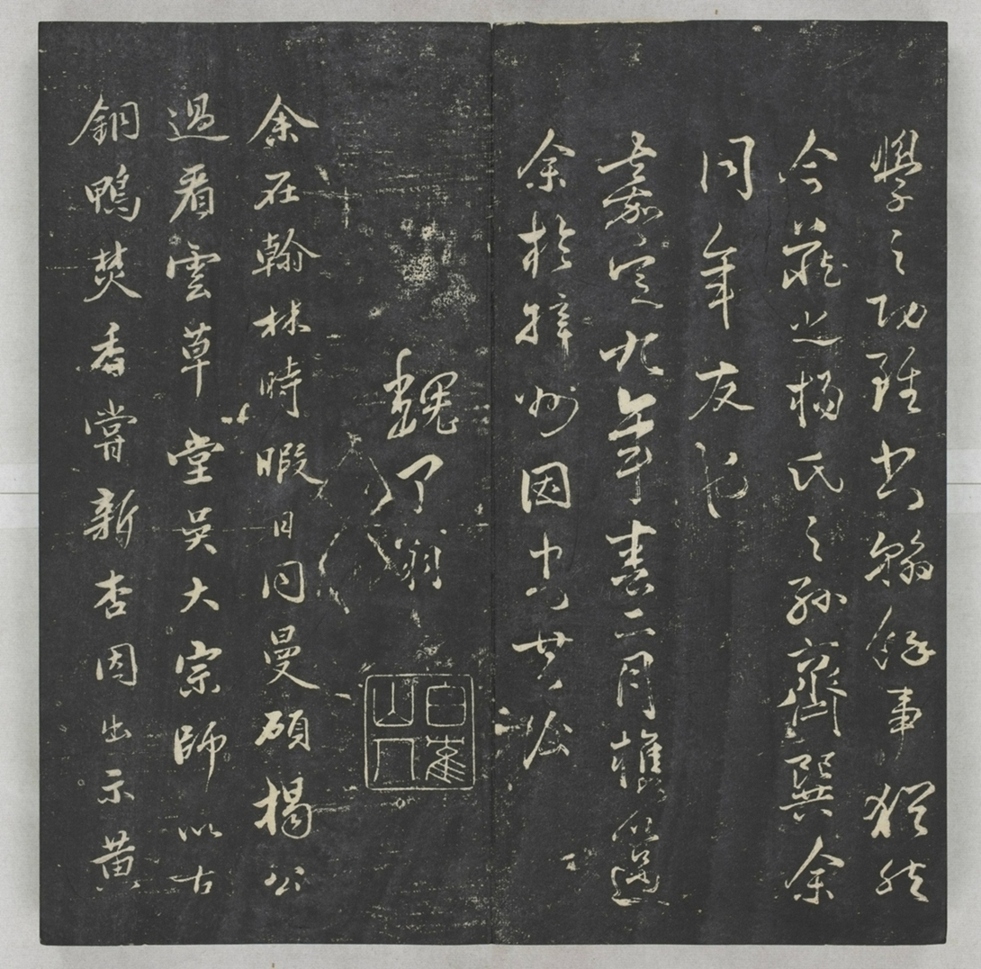 學之功雖書翰餘事猶然
今藏之楊氏之孫齊巽余
同年友也
嘉定九年春二月攜以過
余於梓州因書其後
魏了翁
白鶴山人
余在翰林時暇日同曼碩揭公
過看雲草堂吳大宗師以古
銅鴨焚香嘗新杏因出示黃